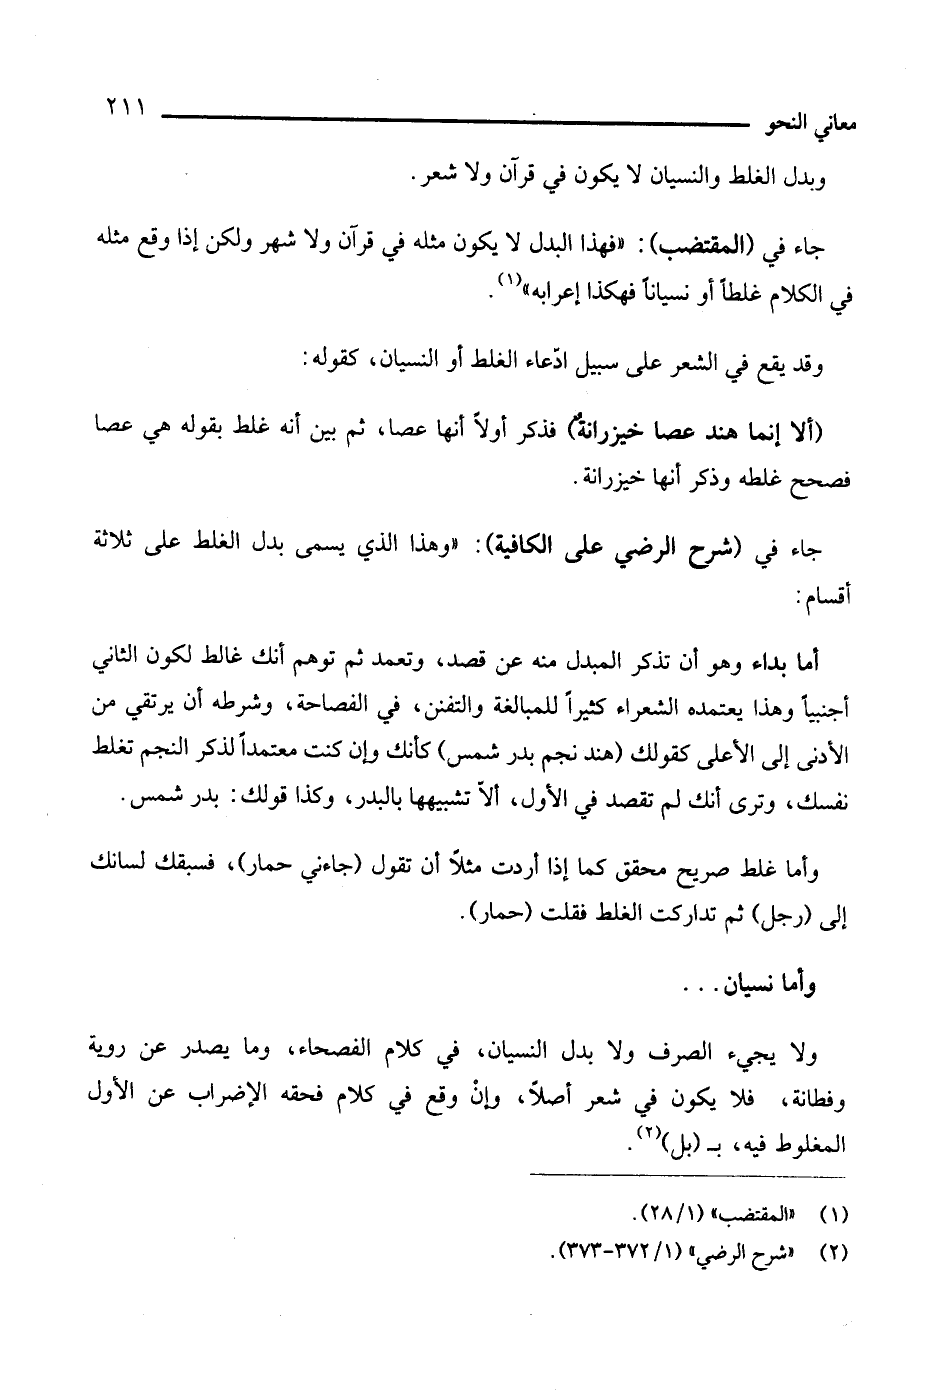 معاني النحو ٢١١
وبدل الغلط والنسيان لا يكون في قرآن ولا شعر.
جاء في (المقتضب): «فهذا البدل لا يكون مثله في قرآن ولا شهر ولكن إذا وقع مثله
في الكلام غلطاً أو نسياناً فهكذا إعرابه»(١).
وقد يقع في الشعر على سبيل ادّعاء الغلط أو النسيان، كقوله:
(ألا إنما هند عصا خيزرانةٌ) فذكر أولاً أنها عصا، ثم بين أنه غلط بقوله هي عصا
فصحح غلطه وذكر أنها خيزرانة.
جاء في (شرح الرضي على الكافية): «وهذا الذي يسمى بدل الغلط على ثلاثة
أقسام:
أما بداء وهو أن تذكر المبدل منه عن قصد، وتعمد ثم توهم أنك غالط لكون الثاني
أجنبياً وهذا يعتمده الشعراء كثيراً للمبالغة والتفنن، في الفصاحة، وشرطه أن يرتقي من
الأدنى إلى الأعلى كقولك (هند نجم بدر شمس) كأنك وإن كنت معتمداً لذكر النجم تغلط
نفسك، وترى أنك لم تقصد في الأول، ألاّ تشبيهها بالبدر، وكذا قولك: بدر شمس.
وأما غلط صريح محقق كما إذا أردت مثلاً أن تقول (جاءني حمار)، فسبقك لسانك
إلى (رجل) ثم تداركت الغلط فقلت (حمار).
وأما نسيان...
ولا يجيء الصرف ولا بدل النسيان، في كلام الفصحاء، وما يصدر عن روية
وفطانة، فلا يكون في شعر أصلاً، وإنْ وقع في كلام فحقه الإضراب عن الأول
المغلوط فيه، بـ (بل)(٢).
(١) «المقتضب» (٢٨/١).
(٢) «شرح الرضي» (٣٧٢/١-٣٧٣).